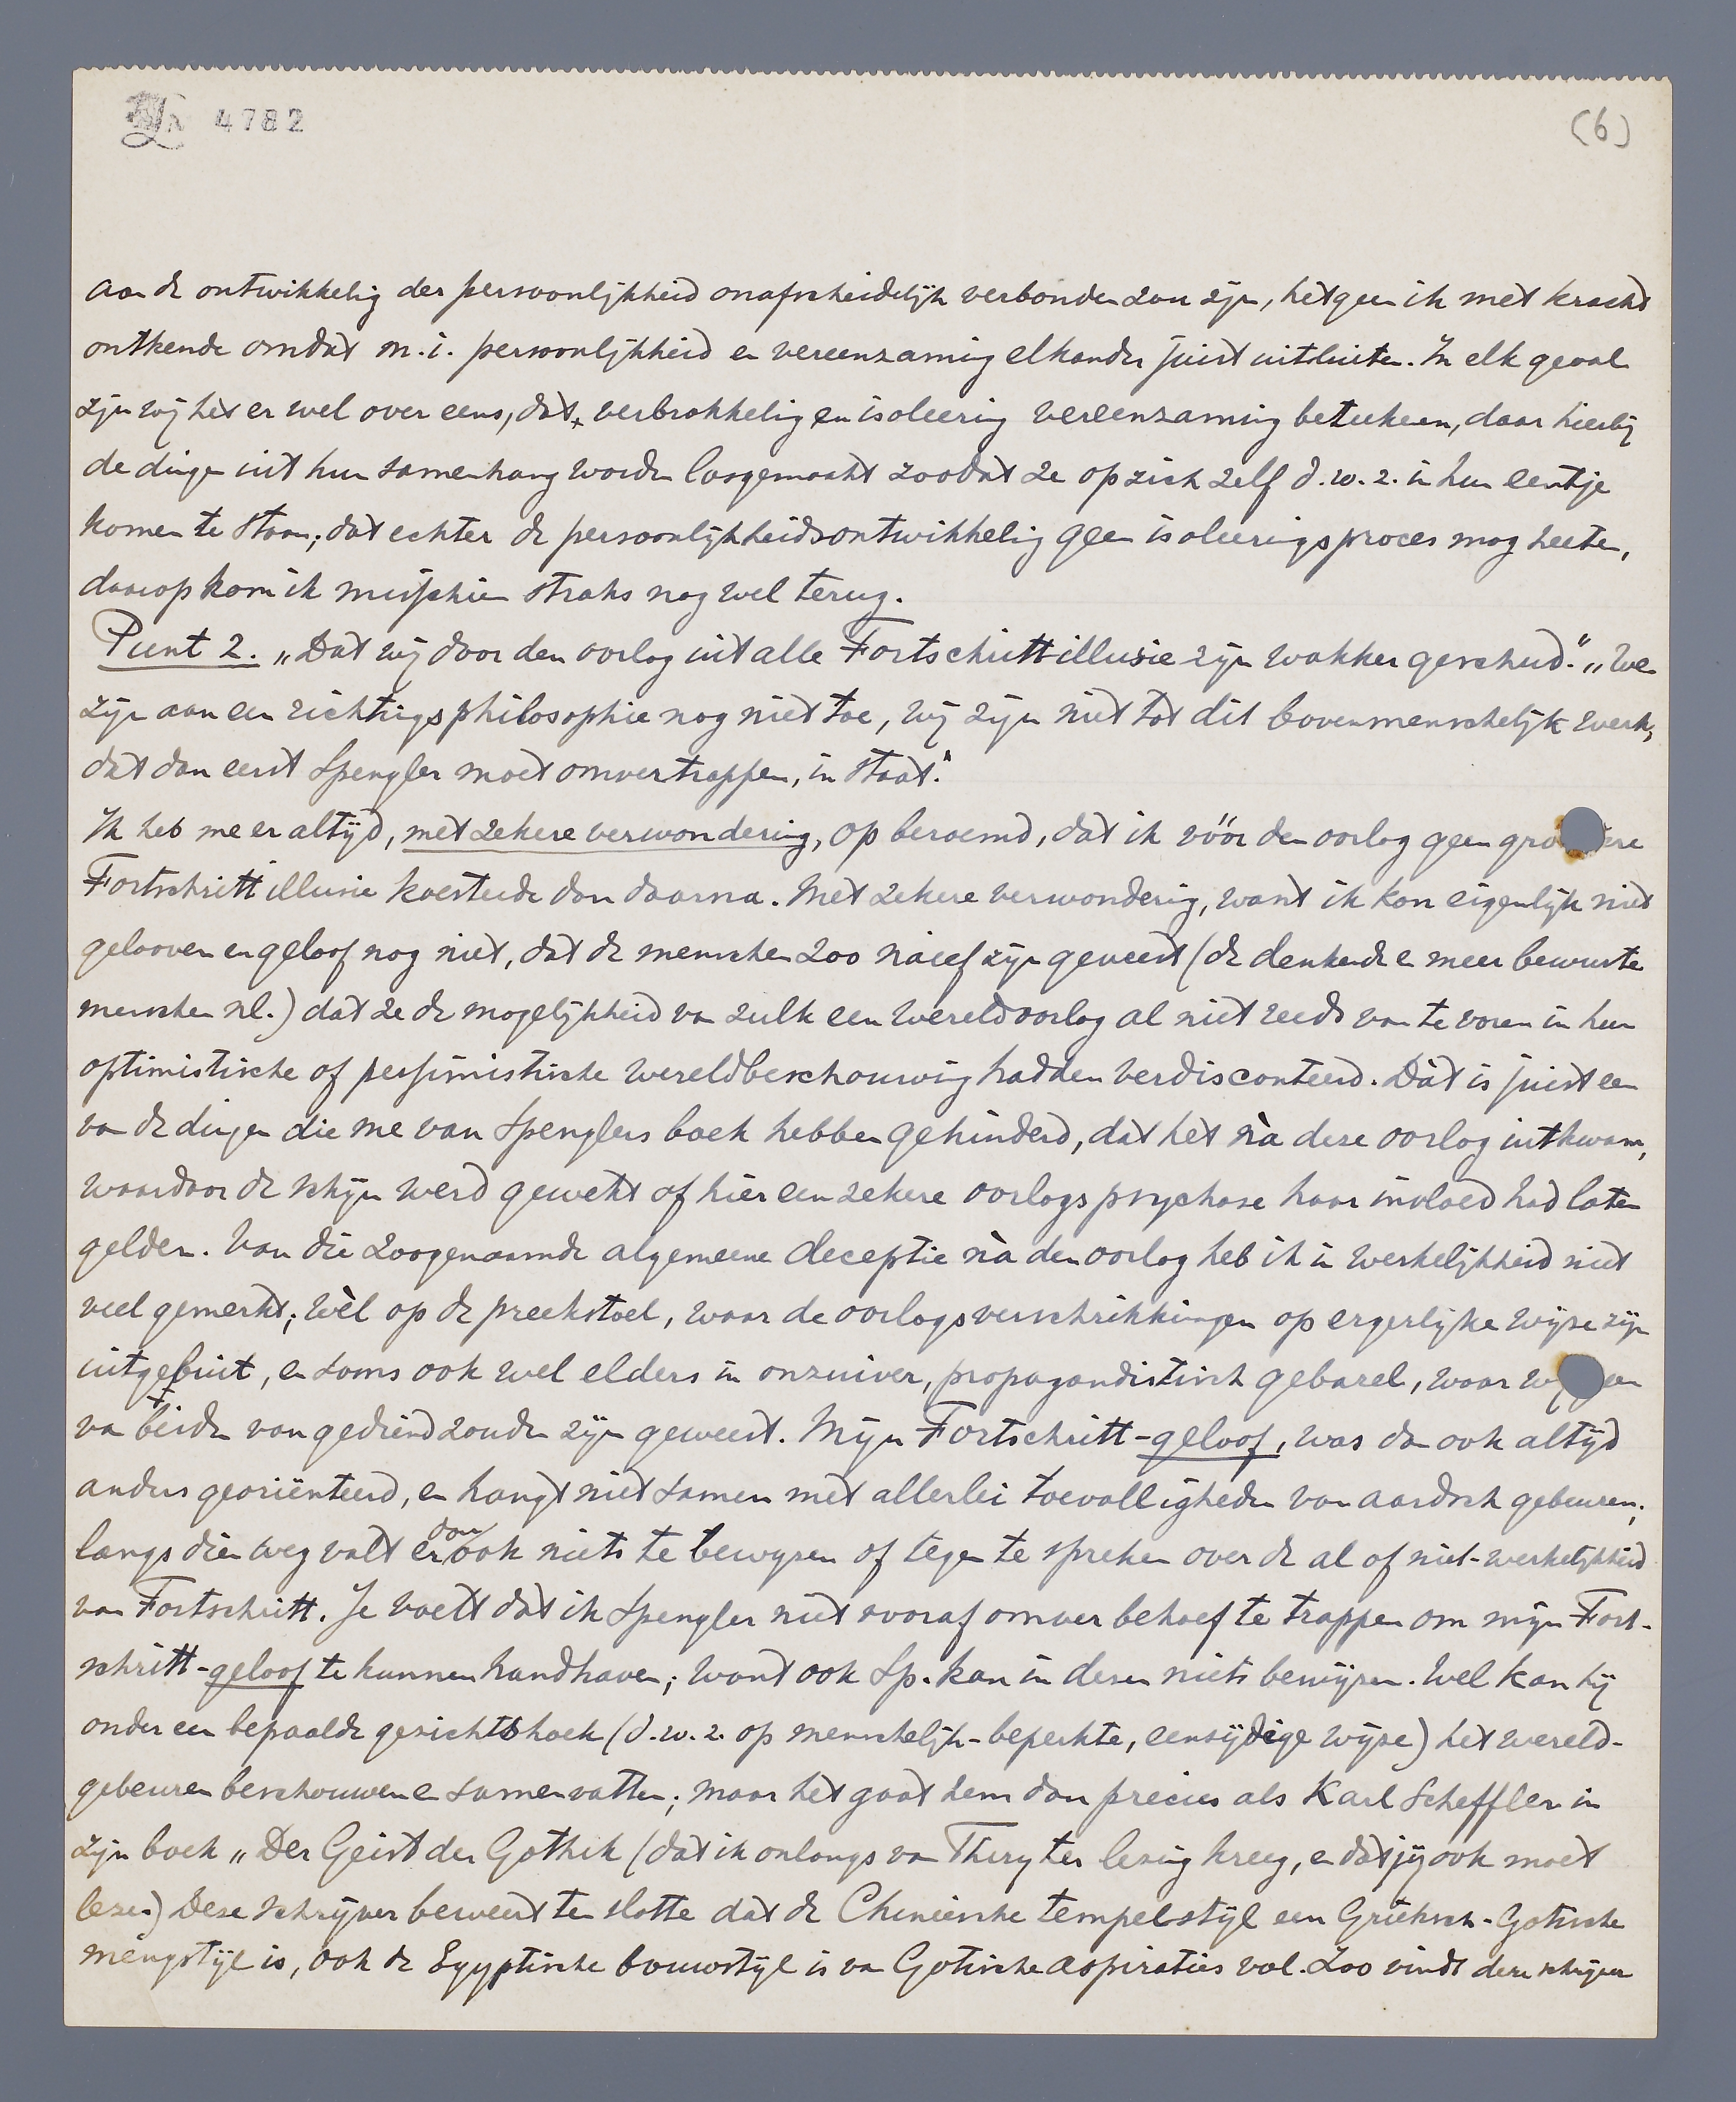 4782
(6)
aan de ontwikkeling der persoonlijkheid onafscheidelijk verbonden zou zijn, hetgeen ik met kracht
ontkende omdat m.i. persoonlijkheid en vereenzaming elkander juist uitsluiten. In elk geval
zijn wij het er wel over eens, dat verbrokkeling en isoleering vereenzaming beteekenen, daar hierbij
de dingen uit hun samenhang worden losgemaakt zoodat ze op zich zelf d.w.z. in hun eentje
komen te staan; dat echter de persoonlijkheidsontwikkeling geen isoleeringsproces mag heeten,
daarop kom ik misschien straks nog wel terug.
Punt 2. „Dat wij door den oorlog uit alle Fortschrittillusie zijn wakker geschud." „We
zijn aan een richtingsphilosophie nog niet toe, wij zijn niet tot dit bovenmenschelijk werk,
dat dan eerst Spengler moet omvertrappen, in staat."
Ik heb me er altijd, met zekere verwondering, op beroemd, dat ik vóór den oorlog geen grootere
Fortschrittillusie koesterde dan daarna. Met zekere verwondering, want ik kon eigenlijk niet
gelooven en geloof nog niet, dat de menschen zoo naief zijn geweest (de denkende en meer bewuste
menschen nl.) dat ze de mogelijkheid van zulk een wereldoorlog al niet reeds van te voren in hun
optimistische of pessimistische wereldbeschouwing hadden verdisconteerd. Dàt is juist een
van de dingen die me van Spenglers boek hebben gehinderd, dat het nà deze oorlog uitkwam,
waardoor de schijn werd gewekt of hier een zekere oorlogspsychose haar invloed had laten
gelden. Van die zoogenaamde algemeene deceptie nà den oorlog heb ik in werkelijkheid niet
veel gemerkt; wèl op de preekstoel, waar de oorlogsverschrikkingen op ergerlijke wijze zijn
uitgebuit, en soms ook wel elders in onzuiver, propagandistisch gebazel, waar wij geen
van beiden van gediend zouden zijn geweest. Mijn Fortschritt-geloof, was dan ook altijd
anders georiënteerd, en hangt niet samen met allerlei toevalligheden van aardsch gebeuren;
langs dien weg valt er dan ook niets te bewijzen of tegen te spreken over de al of niet-werkelijkheid
van Fortschritt. Je voelt dat ik Spengler niet vooraf omver behoef te trappen om mijn Fort-
schritt-geloof te kunnen handhaven; want ook Sp. kan in dezen niets bewijzen. Wel kan hij
onder een bepaalde gezichtshoek (d.w.z. op menschelijk-beperkte, eenzijdige wijze) het wereld-
gebeuren beschouwen en samenvatten; maar het gaat hem dan precies als Karl Scheffler in
zijn boek „Der Geist der Gothik (dat ik onlangs van Thiry ter lezing kreeg, en dat jij ook moet
lezen) Deze schrijver beweert ten slotte dat de Chineesche tempelstijl een Grieksch-Gotische
mengstijl is, ook de Egyptische bouwstijl is van Gotische aspiraties vol. Zoo vindt deze schrijver